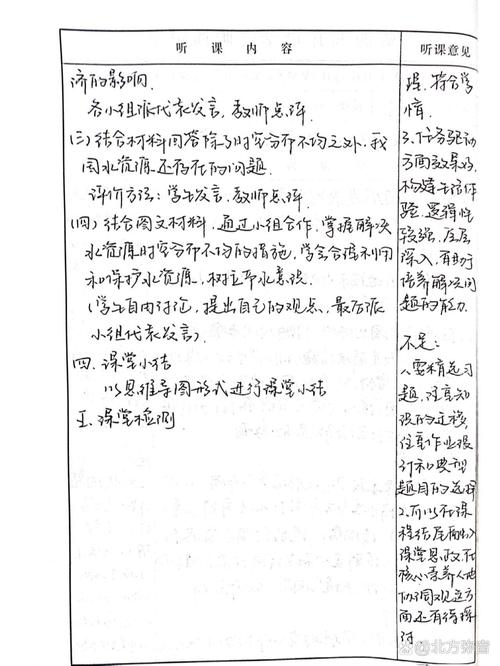 听课内容
济的影响.
各小组派代表发言,教师点评.
(三)结合材料回答除了时空分布不均之外,我
国水资源还存在的问题.
评价方法:学生发言,教师点评.
(四)结合图文材料,通过小组合作,掌握解决
水资源时空分布不均的措施,学会合理利用
和保护水资源,树立节水意识.
(学生自由讨论,提出自己的观点,最后派
小组代表发言).
四.课堂小结
以思维导图形式进行课堂小结
五.课堂检测
听课意见
理.符合学
情.
3.任务驱动
方面效果好,
构建生活体
验.逻辑性
较强,层层
深入,有助于
培养解决问
题的能力.
不足:
1.需精选习
题,注意知
识的迁移,
注重作业设
计和典型
题目的选择
2.可以在课
程结尾
课堂思政,在
核心素养人地
协调观这方
面还有待探
讨.
北方弥音